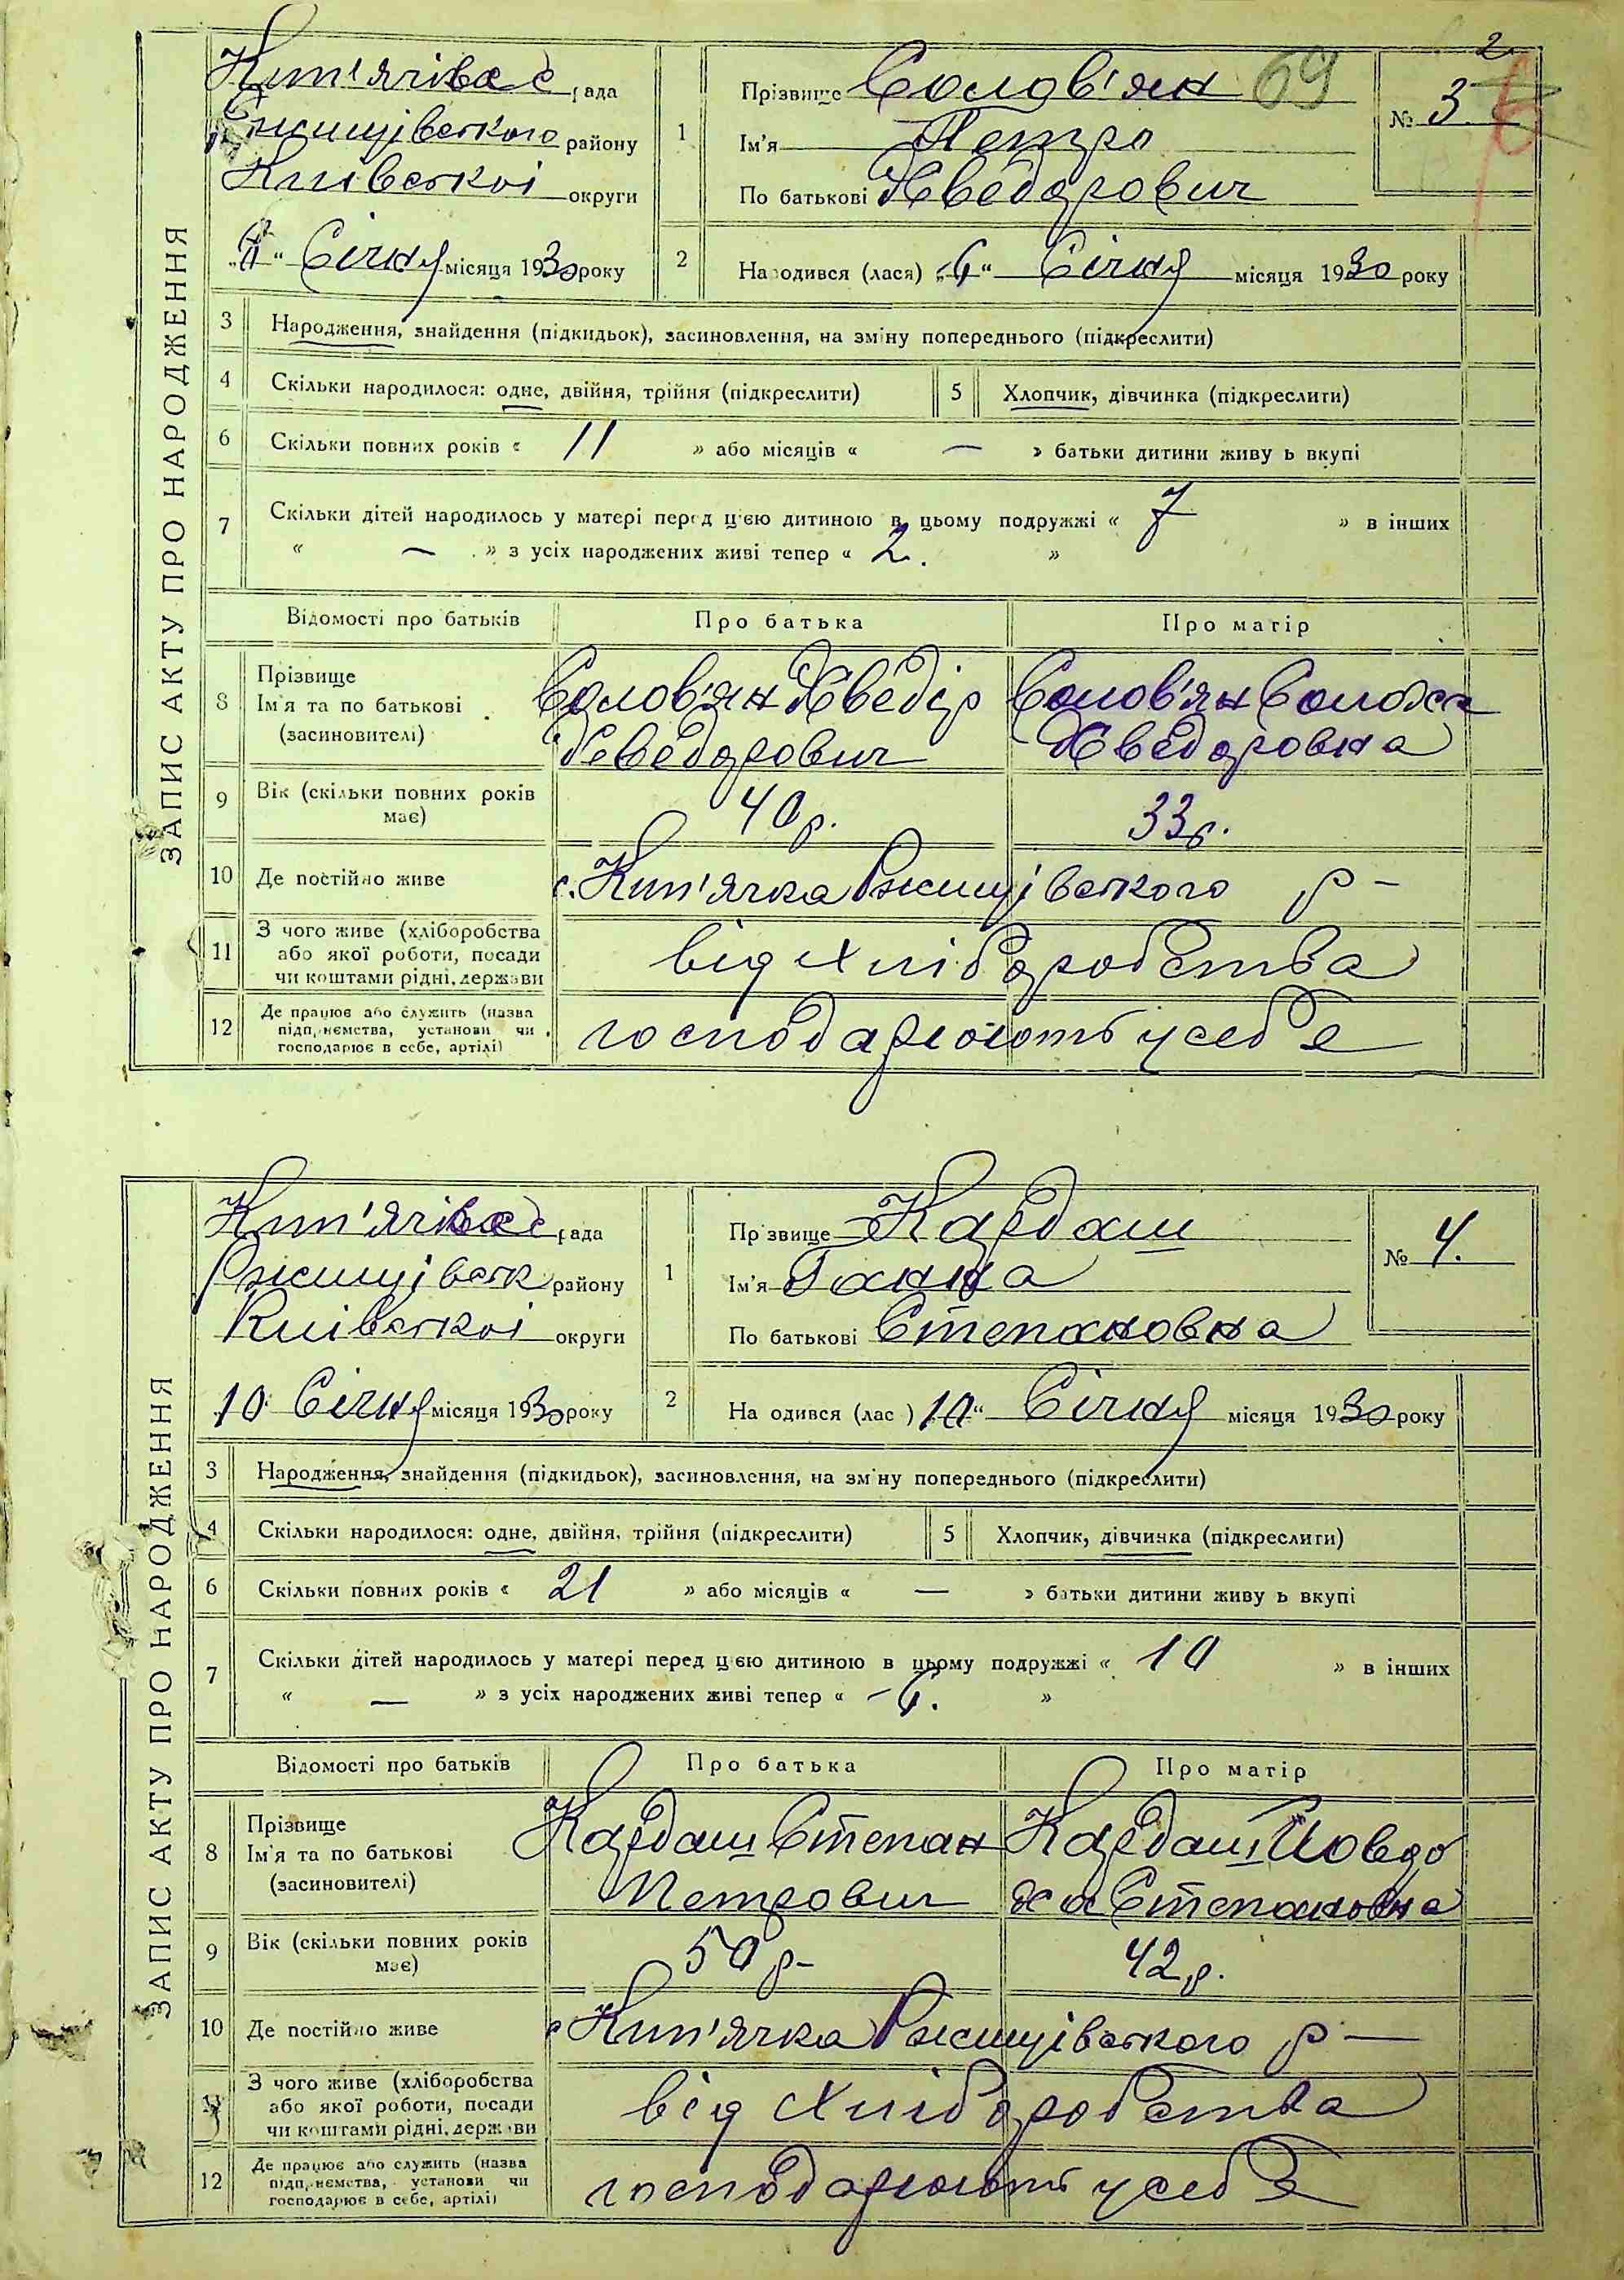 ЗАПИС АКТУ ПРО НАРОДЖЕННЯ
Кип'ячівсс рада
Ржищівського району
Київської округи
Січня місяця 1930 року
1
Прізвище Солов'ян 69
Ім'я Петро
По батькові Хведорович
2
№ 3
2 Народився (лася) „6“ Січня місяця 1930 року
3 Народження, знайдення (підкидьок), засиновлення, на зміну попереднього (підкреслити)
4 Скільки народилося: одне, двійня, трійня (підкреслити) 5 Хлопчик, дівчинка (підкреслити)
6 Скільки повних років « 11 » або місяців « — » батьки дитини живуть вкупі
7 Скільки дітей народилось у матері перед цією дитиною в цьому подружжі « 7 » в інших
« — » з усіх народжених живі тепер « 2. »
Відомості про батьків Про батька Про матір
8 Прізвище
Ім'я та по батькові
(засиновителі)
Солов'ян Хведір
Хведорович
Солов'ян Солоха
Хведоровна
9 Вік (скільки повних років має) 40 р. 33 р.
10 Де постійно живе с. Кип'ячка Ржищівського р –
11 З чого живе (хліборобства
або якої роботи, посади
чи коштами рідні, держави
від хліборобства
12 Де працює або служить (назва
підприємства, установи чи
господарює в себе, артілі)
господарюють у себе
ЗАПИС АКТУ ПРО НАРОДЖЕННЯ
Кип'ячівсс рада
Ржищівськ району
Київської округи
10 Січня місяця 1930 року
1
Прізвище Кардаш
Ім'я Ганна
По батькові Степановна
№ 4.
2 Народився (лас ) „10“ Січня місяця 1930 року
3 Народження, знайдення (підкидьок), засиновлення, на зміну попереднього (підкреслити)
4 Скільки народилося: одне, двійня, трійня (підкреслити) 5 Хлопчик, дівчинка (підкреслити)
6 Скільки повних років « 21 » або місяців « — » батьки дитини живуть вкупі
7 Скільки дітей народилось у матері перед цією дитиною в цьому подружжі « 10 » в інших
« — » з усіх народжених живі тепер « – 6. »
Відомості про батьків Про батька Про матір
8 Прізвище
Ім'я та по батькові
(засиновителі)
Кардаш Степан
Петрович
Кардаш Йовдо
ха Степановна
9 Вік (скільки повних років має) 50 р – 42 р.
10 Де постійно живе с Кип'ячка Ржищівського р —
11 З чого живе (хліборобства
або якої роботи, посади
чи коштами рідні, держави
від хліборобства
12 Де працює або служить (назва
підприємства, установи чи
господарює в себе, артілі)
господарюють у себе